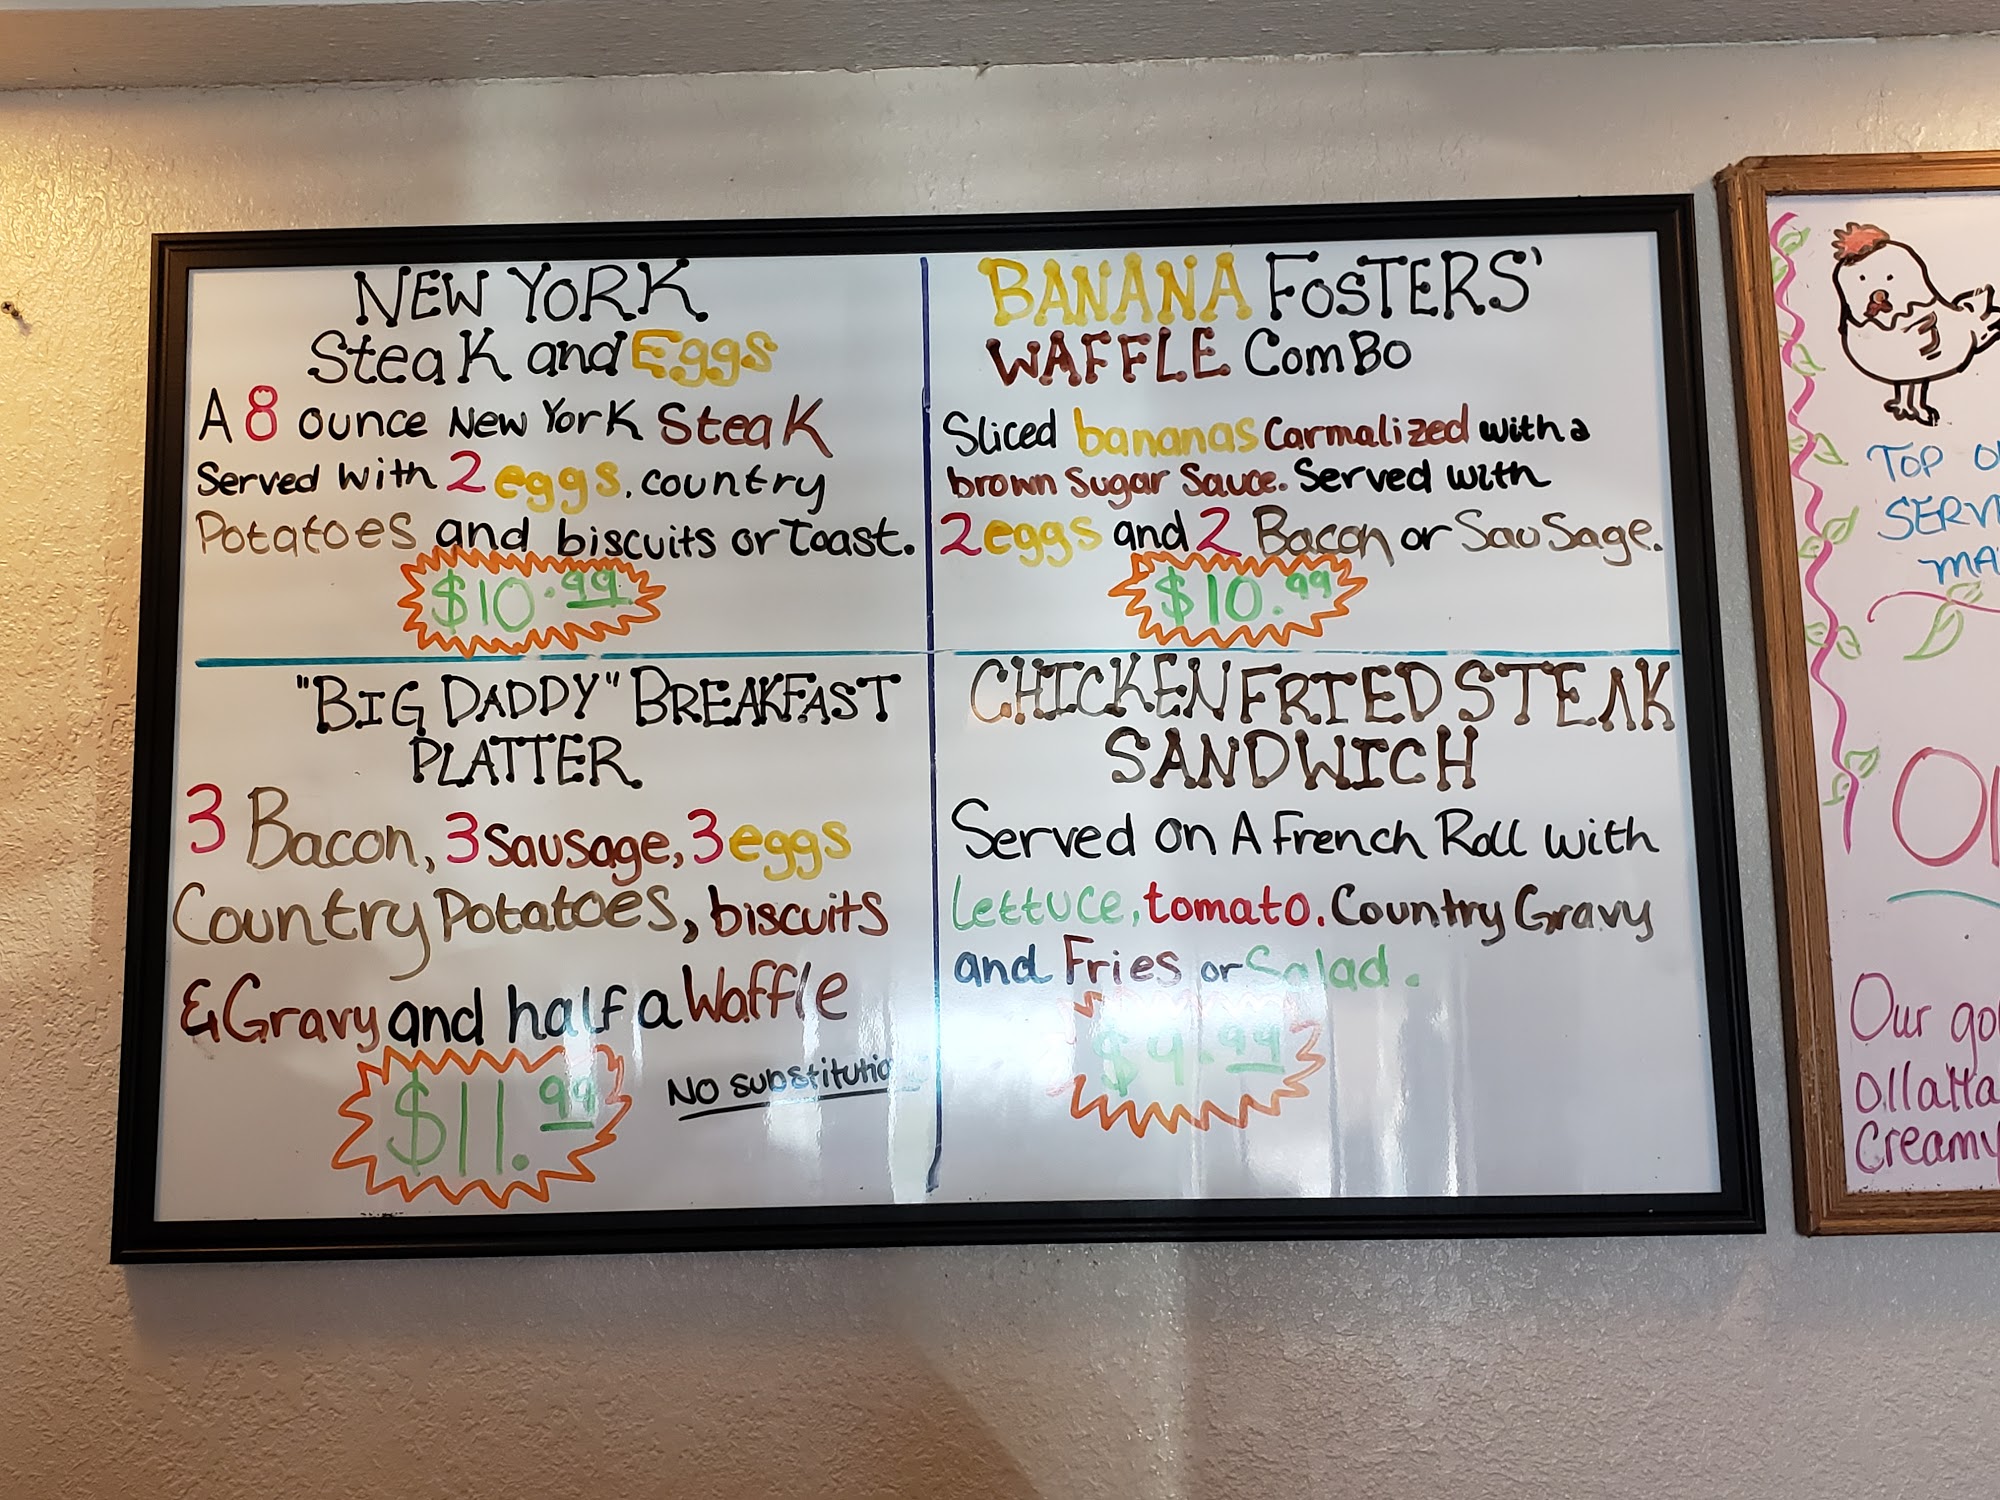 NEW YORK
Steak and Eggs
A 8 ounce New York Steak
Served with 2 eggs, country
Potatoes and biscuits or Toast.
$10.99
BANANA FOSTERS'
WAFFLE ComBo
Sliced bananas Carmalized with a
brown Sugar Sauce. Served with
2 eggs and 2 Bacon or Sausage.
$10.99
"BIG DADDY" BREAKFAST
PLATTER
3 Bacon, 3 Sausage, 3 eggs
Country Potatoes, biscuits
& Gravy and half a Waffle
$11.99
No substitutio
CHICKEN FRIED STEAK
SANDWICH
Served on A French Roll with
Lettuce, tomato. Country Gravy
and Fries or Salad.
$9.99
TOP
SERV
MA
Our
Ollalla
Creamy